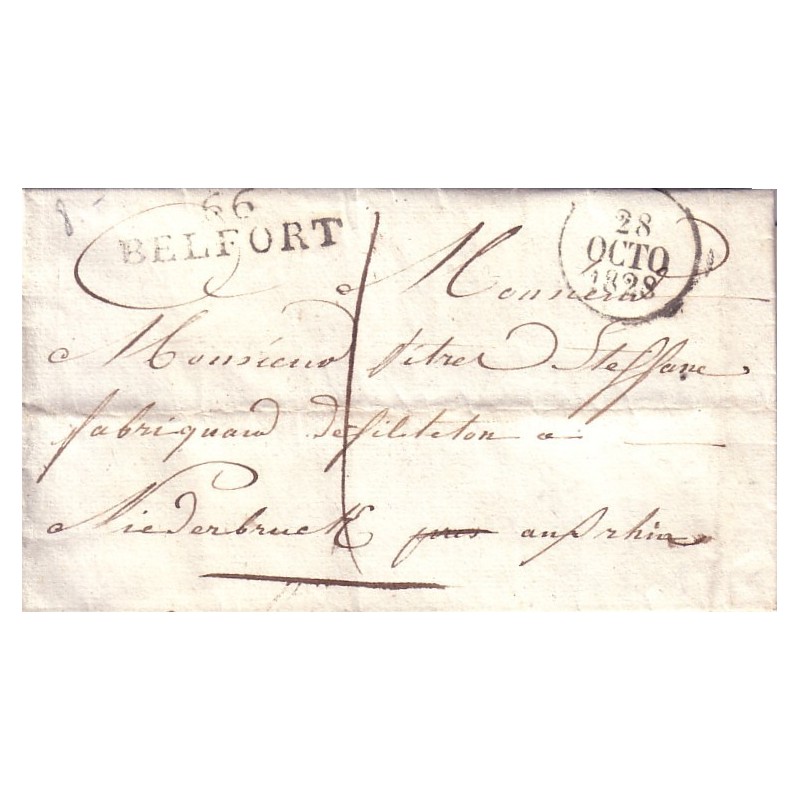 66
BELFORT
28
OCTO
1828
Monsieur
Monsieur Vitres Steffane
fabriquand de filleton a
Niederbruck auhrhin